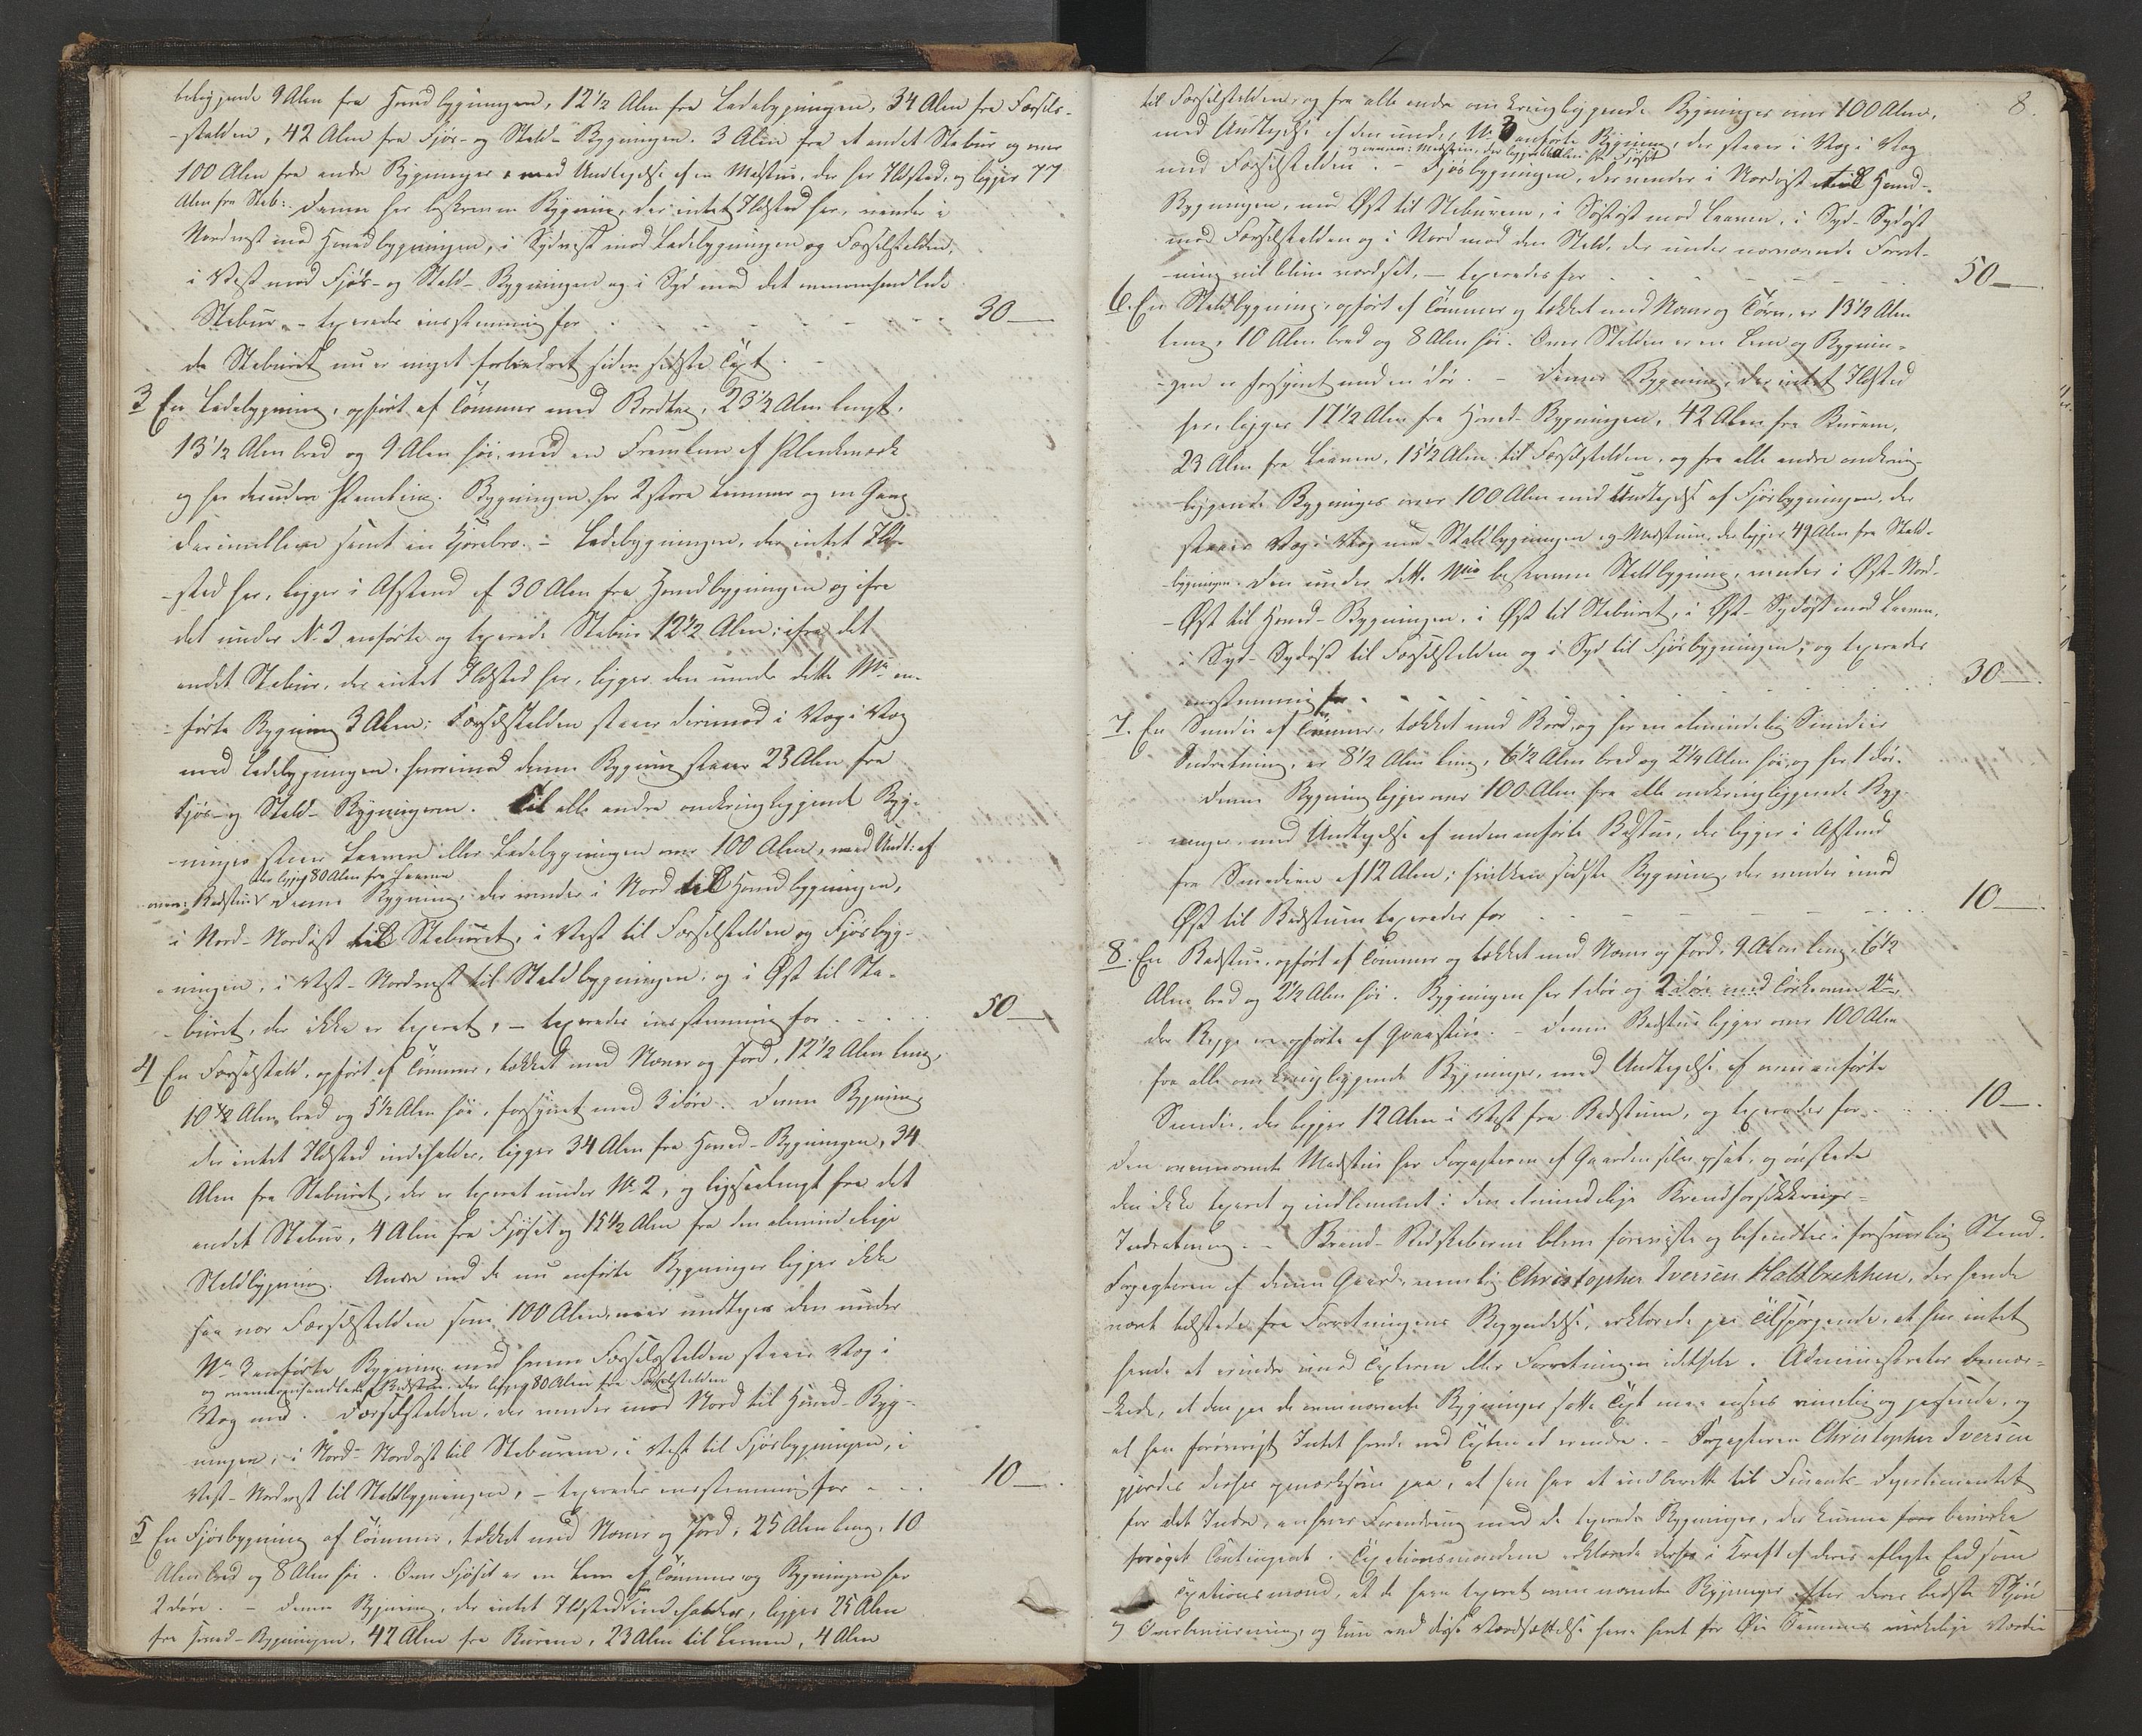 beliggende 9 Alen fra Hovedbygningen, 12 1/2 Alen fra Ladebygningen, 34 Alen fra Forsels-
-stalden, 42 Alen fra Fjøs- og Stald-Bygningen. 3 Alen fra et andet Stabur og over
100 Alen fra andre Bygninger, med Undtagelse af en Madstue, der har Ildsted, og ligger 77
Alen fra Stab: Denne her beskrevne Bygning, der intet Ildsted har, vender i
Nordvest mod Hovedbygningen, i Sydvest mod Ladebygningen og Forselstalden,
i Vest mod Fjøs- og Stald-Bygningen og i Syd mod det ommeldte
Stabur, - taxerede eenstemmig for 30 —
da Staburet nu er meget forbedret siden sidste Taxt.
3 En Ladebygning, opført af Tømmer med Bordtag, 23 1/2 Alen lengt,
13 1/2 Alen bred og 9 Alen høi, med en
og har desuden . Bygningen har 2 store Rummer og en Gang
derimellem samt en Kjørebro. - Ladebygningen, der intet Ild-
-sted har, ligger i Afstand af 30 Alen fra Hovedbygningen og ifra
det under No 2 anførte og taxerede Stabur 12 1/2 Alen; ifra det
andet Stabur, der intet Ildsted har, ligger den under dette No an-
-førte Bygning 3 Alen; Forselstalden staaer derimod i Væg i Væg
med Ladebygningen, hvorimod denne Bygning staaer 23 Alen fra
Fjøs- og Stald-Bygningerne. Til alle andre omkringliggende Byg-
-ninger staaer Laaven eller Ladebygningen over 100 Alen, med Undt: af
der ligger 80 Alen fra Laaven
Badstue. Denne Bygning, der vender i Nord til Hovedbygningen,
i Nord-Nordøst til Staburet, i Vest til Forselstalden og Fjøsbyg-
-ningen, i Vest-Nordvest til Staldbygningen, og i Øst til Sta-
-buret, der ikke er taxeret, - taxeredes eenstemmig for 50 —
4 En Forselstald, opført af Tømmer, tækket med Næver og Jord, 12 1/2 Alen lang,
10 1/2 Alen bred og 5 1/2 Alen høi, forsynet med 3 døre. Denne Bygning
der intet Ildsted indeholder, ligger 34 Alen fra Hoved-Bygningen, 34
Alen fra Staburet, der er taxeret under No 2, og ligesaalangt fra det
andet Stabur, 4 Alen fra Fjøset og 15 1/2 Alen fra den almindelige
Staldbygning. Andre end de nu anførte Bygninger ligger ikke
saa nær Forselstalden som 100 Alen, naar undtages den under
No 3 anførte Bygning med hvem Forselstalden staaer Væg i
og ovenomhandlede Badstue, der ligger 80 Alen fra Forselstalden
Væg med. Forselstalden, der vender mod Nord til Hoved-Byg-
-ningen, i Nord-Nordøst til Staburene, i Vest til Fjøsbygningen, i
Vest-Nordvest til Staldbygningen, - taxeredes eenstemmig for 10 —
5 En Fjøsbygning af Tømmer, tækket med Næver og Jord, 25 Alen lang, 10
Alen bred og 8 Alen høi. Over Fjøset er en Lem af Tømmer og Bygningen har
2 døre. - Denne Bygning, der intet Ildsted indeholder, ligger 25 Alen
fra Hoved-Bygningen, 42 Alen fra Burene, 23 Alen til Laaven, 4 Alen
8.
til Forselstalden, og fra alle andre omkringliggende Bygninger over 100 Alen,
med Undtagelse af den under No 3 anførte Bygning, der staaer i Væg i Væg
og ovenn: Madstue, der ligger Alen fra Fjøset
med Forselstalden. - Fjøsbygningen, der vender i Nordøst til Hoved-
Bygningen, mod Øst til Staburene, i Sydøst mod Laaven, i Syd-Sydøst
mod Forselstalden og i Nord mod den Stald, der under nærværende Forret-
-ning vil blive vordset, - taxeredes for 50 —
6. En Staldbygning, opført af Tømmer og tækket med Næver og Tørv, er 13 1/2 Alen
lang, 10 Alen bred og 8 Alen høi. Over Stalden er en Lem og Bygnin-
-gen er forsynet med en dør. - Denne Bygning, der intet Ildsted
har, ligger 17 1/2 Alen fra Hoved-Bygningen, 42 Alen fra Burene,
23 Alen fra Laaven, 15 1/2 Alen til Forselstalden, og fra alle andre omkring-
liggende Bygninger over 100 Alen med Undtagelse af Fjøsbygningen, der
staaer Væg i Væg med Staldbygningen og Madstuen, der ligger 49 Alen fra Stald-
bygningen. Den under dette No beskrevne Staldbygning, vender i Øst-Nord-
-Øst til Hoved-Bygningen, i Øst til Staburet, i Øst-Sydøst mod Laaven,
i Syd-Sydøst til Forselstalden og i Syd til Fjøsbygningen, og taxeredes
eenstemmig for 30 —
7. En Smedie af Tømmer, tækket med Bord, og har en almindelig Smedie
Indretning, er 8 1/2 Alen lang, 6 1/2 Alen bred og 2 1/4 Alen høi, og har 1 dør.
Denne Bygning ligger over 100 Alen fra alle omkringliggende Byg-
ninger, med Undtagelse af nedenanførte Badstue, der ligger i Afstand
fra Smedien af 12 Alen; hvilken sidste Bygning, der vender imod
Øst til Badstuen taxeredes for 10 —
8. En Badstue, opført af Tømmer og tækket med Næver og Jord, 9 Alen lang, 6 1/2
Alen bred og 2 1/2 Alen høi. Bygningen har 1 dør og 2
der begge ere opførte af Graasteen. - Denne Badstue ligger over 100 Alen
fra alle omkringliggende Bygninger, med Undtagelse af ovenanførte
Smedie, der ligger 12 Alen i Vest fra Badstuen, og taxeredes for 10 —
Den ovennævnte Madstue har Forpagteren af Gaarden selv opsat, og ønskede
den ikke taxeret og indlemmet i den almindelige Brandforsikkrings-
Indretning. - Brand-Redskaberne bleve foreviste og befandtes i forsvarlig Stand.
Forpagteren af denne Gaard, nemlig Christopher Iversen Haldbrekken, der havde
været tilstede fra Forretningens Begyndelse, erklærede paa Tilspørgende, at han intet
havde at erindre imod Taxten eller Forretningen idethele. Administrator bemær-
-kede, at den paa de ovennævnte Bygninger satte Taxt maa ansees rimelig og passende, og
at han forøvrigt Intet havde ved Taxten at erindre. - Forpagteren Christopher Iversen
gjordes derhos opmærksom paa, at han har at indberette til Finants-Departementet
for det Indre, enhver Forandring med de taxerede Bygninger, der kunne bevirke
forøget Contingent. Taxationsmændene erklærede derhos i Kraft af deres aflagte Eed som
Taxationsmænd, at de have taxeret ovennævnte Bygninger efter deres bedste Skjøn
og Overbeviisning, og kun ved disse Værdsættelse have havt for Øie Sammes virkelige Værdie